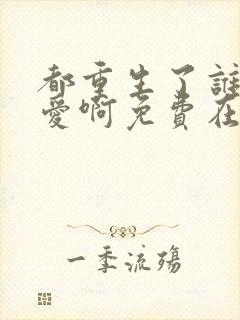 都重生了誰
愛啊免費在
一季流殤